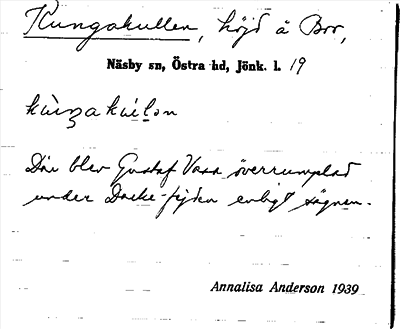 Kungakullen, höjd å Bro,
Näsby sn, Östra hd, Jönk. l. 19
kùṉakùlən
Där blev Gustaf Vasa överrumplad
under Dacke-fejden enligt sägnen.
Annalisa Anderson 1939